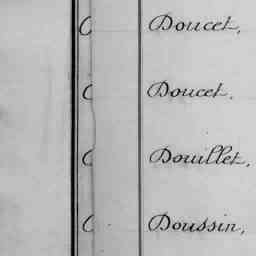 Doucet,
Doucet.
Douillet,
Doussin,